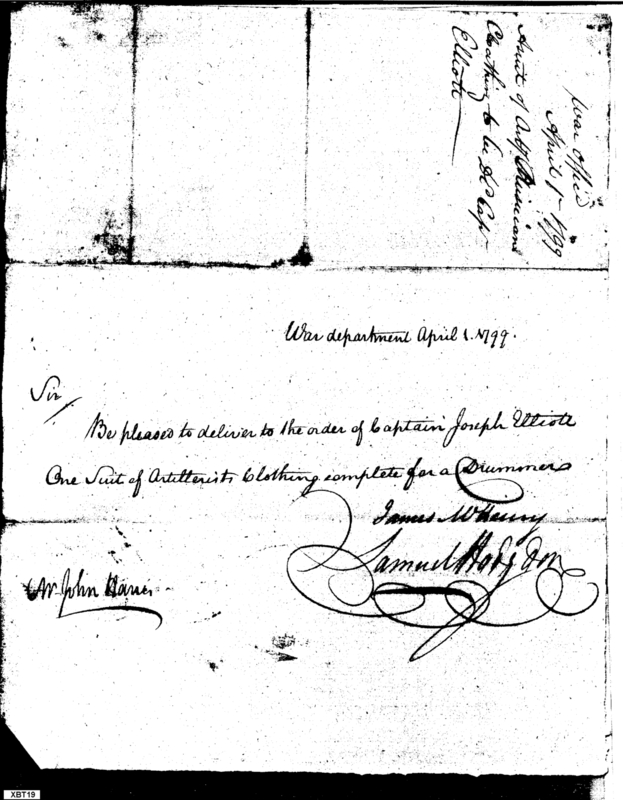 War office
April 1st 1799
A suit of Arty. Musicians
Cloathing to be Dd Capt
Elliott
War department April 1. 1799.
Sir
Be pleased to deliver to the order of Captain Joseph Elliott
One Suit of Artillerists Clothing complete for a Drummer
James McHenry
Samuel Hodgdon
Mr John Harris
XBT19